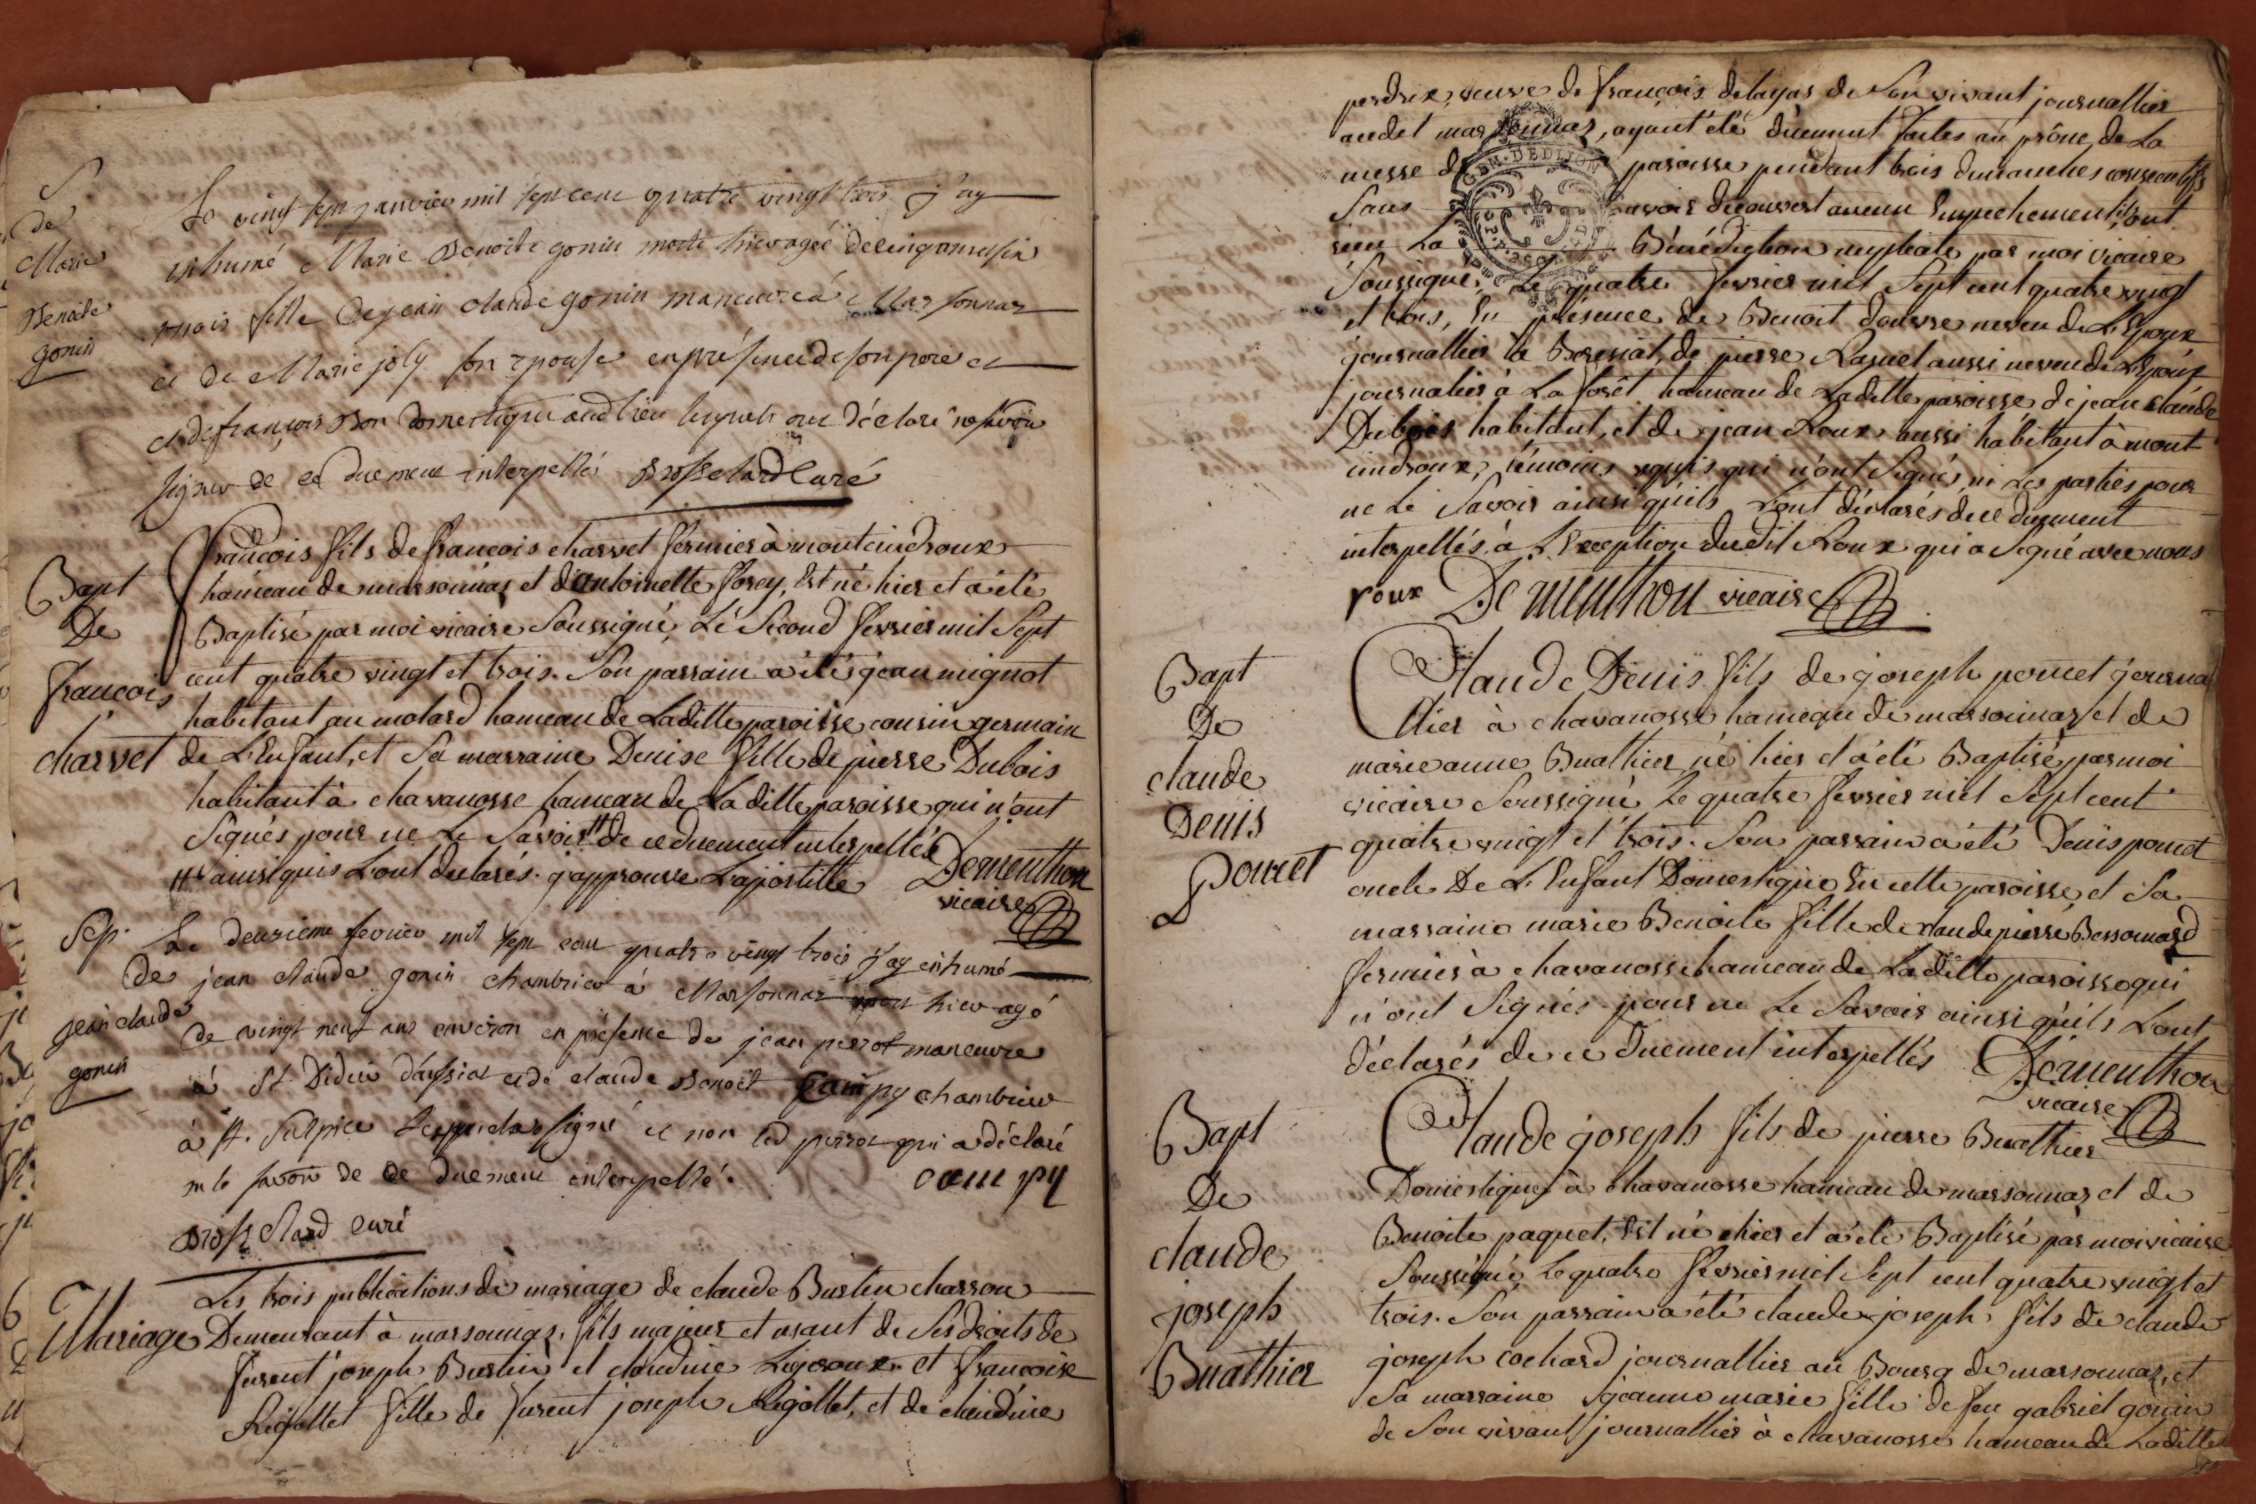 S.
de
Marie
Benoite
gonin
Le vingt sept janvier mil sept cent quatre vingt trois j'ay
inhumé Marie Benoite gonin morte hier agée de cinq ans six
mois fille de jean claude gonin manœuvre à Marsonnaz
et de Marie joly son epouse en présence de son pere et
et de françois Bon domestique aud lieu lesquels ont déclaré ne savoir
signer de ce duement interpellés Brosselard Curé
Bapt
De
françois
charvet
françois fils de françois charvet fermier à montcindroux
hameau de marsonnaz et d'antoinette forey, Est né hier et a été
Baptisé par moi vicaire Soussigné, Le Second fevrier mil Sept
cent quatre vingt et trois. Son parrain a été jean mignot
habitant au molard hameau de Laditte paroisse cousin germain
de L'Enfant, et Sa marraine Denise fille de pierre Dubois
habitant à chavanosse hameau de Laditte paroisse qui n'ont
Signés pour ne Le Savoir de ce duement interpellés
ainsi quis L'ont declarés. j'approuve L'apostille Dementhon
vicaire
Sep.
de
jean claude
gonin
Le deuxième fevrier mil sept cent quatre vingt trois j'ay inhumé
jean claude gonin chambrier à Marsonnaz mort hier agé
de vingt neuf ans environ en présence de jean perrot manœuvre
à St Didier d'aussiat et de claude Benoit Campy chambrier
à St. Sulpice lequel a signé et non led perrot qui a déclaré
ne le savoir de ce duement interpellé. campy
Brosselard curé
Mariage
Les trois publications de mariage de claude Buslin charron
Demeurant à marsonnaz, fils majeur et usant de Ses droits de
furent joseph Buslin et claudine Ligeroux et françoise
Rigollet fille de furent joseph Rigollet, et de claudine
perdrix, veuve de françois delayas de Son vivant journallier
audit marsonnaz, ayant été düement faites au prône de La
messe de paroisse pendant trois dimanches consecutifs
Sans avoir découvert aucun Empechement, ont
reçu La Bénédiction nuptiale par moi vicaire
Soussigné, Le quatre fevrier mil Sept cent quatre vingt
et trois, En présence de Benoit Douvre neveu de L'Epoux
journallier à Beresiat, de pierre Raquet aussi neveu de L'Epoux
journalier à La forêt hameau de Laditte paroisse de jean claude
Dubois habitant, et de jean Roux aussi habitant à mont
cindroux, témoins requis qui n'ont Signés ni Les parties pour
ne Le Savoir ainsi qu'ils L'ont déclarés de ce duement
interpellés à L'Exception dudit Roux qui a Signé avec nous
roux Dementhon vicaire
Bapt
De
claude
Denis
Poncet
Claude Denis fils de joseph poncet journa
llier à chavanosse hameau de marsonnaz et de
marie anne Buathier né hier et a été Baptisé par moi
vicaire Soussigné Le quatre fevrier mil Sept cent
quatre vingt et trois. Son parrain a été Denis poncet
oncle De L'Enfant Domestique En cette paroisse, et Sa
marraine marie Benoite fille de claude pierre Bessonnard
fermier à chavanosse hameau de Laditte paroisse qui
n'ont Signés pour ne Le Savoir ainsi qu'ils L'ont
déclarés de ce Duement interpellés Dementhon
vicaire
Bapt
De
claude
joseph
Buathier
Claude joseph fils de pierre Buathier
Domestique à chavanosse hameau de marsonnaz et de
Benoite paquet, Est né hier et a été Baptisé par moi vicaire
Soussigné, Le quatre fevrier mil Sept cent quatre vingt et
trois. Son parrain a été claude joseph fils de claude
joseph cochard journallier au Bourg de marsonnaz, et
Sa marraine jeanne marie fille de feu gabriel gonin
de Son vivant journallier à chavanosse hameau de Laditte